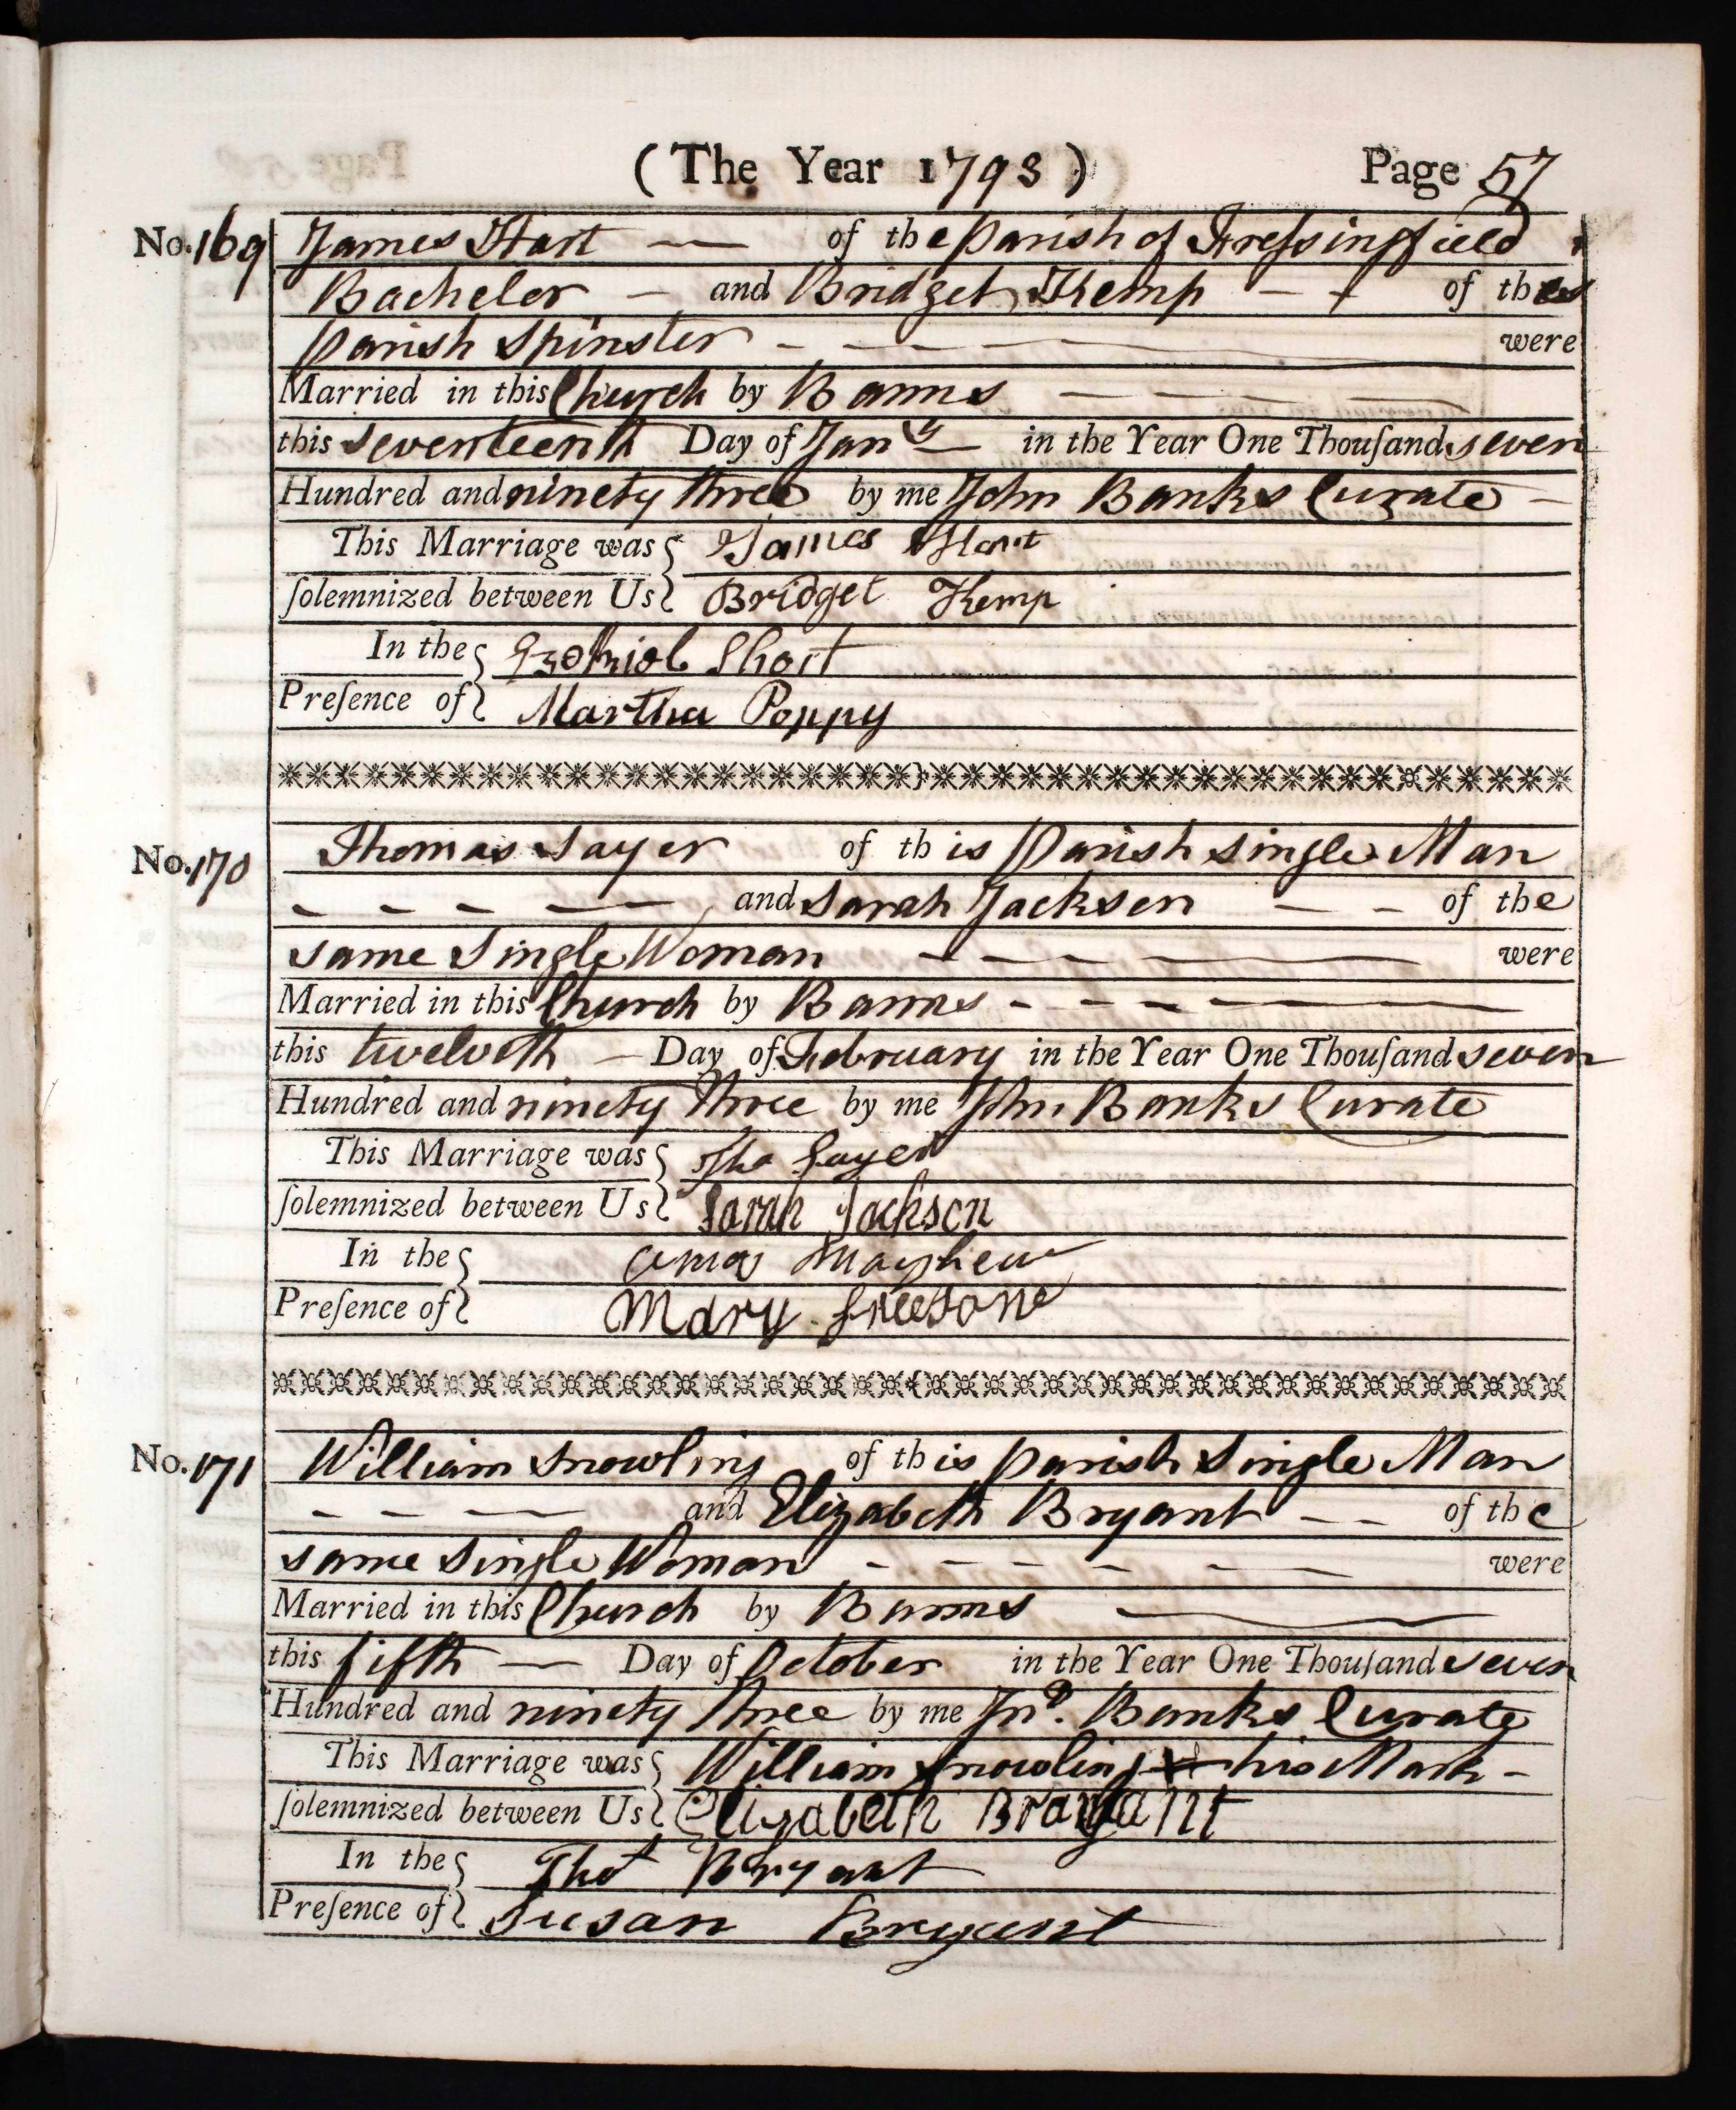 (The Year 1793) Page 57
No. 169 James Hart — of the parish of Fressingfield
Bachelor — and Bridget Kemp — — of this
parish Spinster — — — — were
Married in this Church by Banns — — — —
this seventeenth Day of Janry — in the Year One Thouſand seven
Hundred and ninety three by me John Banks Curate —
This Marriage was James Hart
ſolemnized between Us Bridget Kemp
In the Short
Preſence of Martha Poppy
No. 170 Thomas Sayer of this parish single Man
— — — — — and Sarah Jackson — — of the
same Single Woman — — — — — were
Married in this Church by Banns - — — — —
this twelveth — Day of February in the Year One Thouſand seven
Hundred and ninety three by me John Banks Curate
This Marriage was Tho Sayer
ſolemnized between Us Sarah Jackson
In the Mayhew
Preſence of Mary freestone
No. 171 William Snowling of this parish Single Man
— — — — and Elizabeth Bryant — — of the
same Single Woman — — — — — — were
Married in this Church by Banns ———
this fifth — Day of October in the Year One Thouſand seven
Hundred and ninety three by me Jno. Banks Curate
This Marriage was William Snowling X his Mark —
ſolemnized between Us Elizabeth Brayant
In the Thos Bryant
Preſence of Susan Bryant